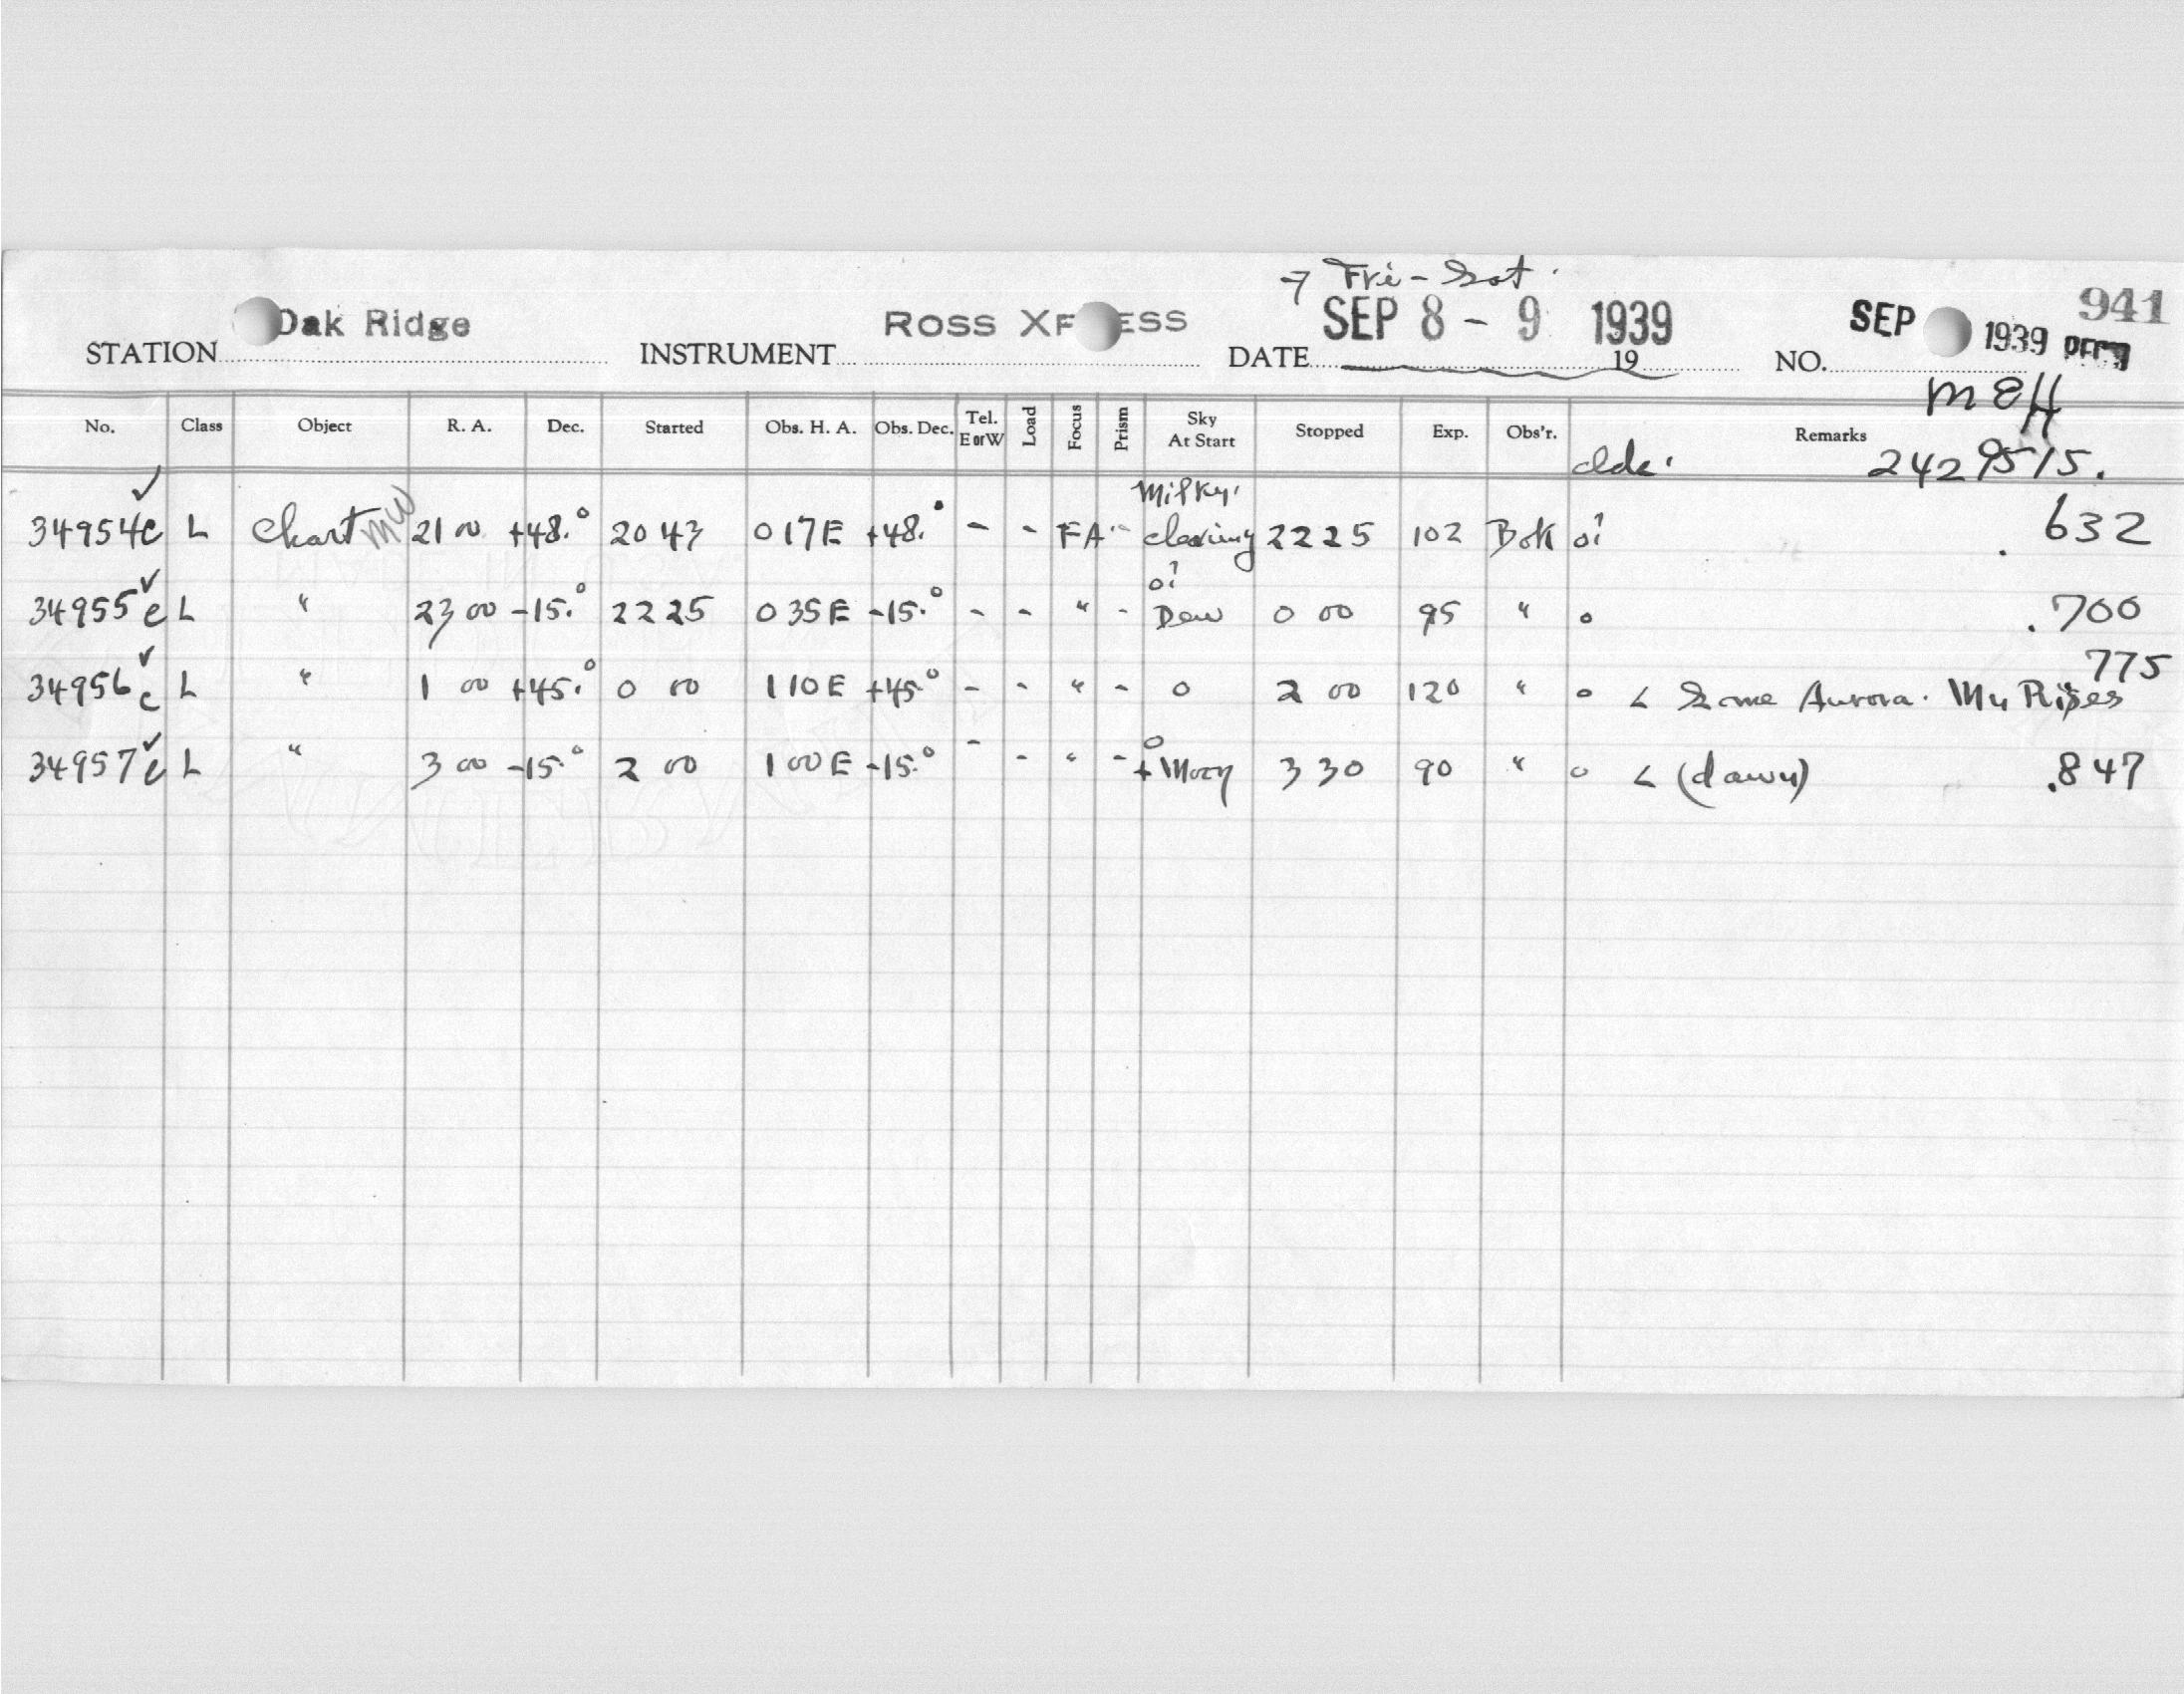 → Fri - Sat.
STATION Oak Ridge INSTRUMENT ROSS XPRESS DATE SEP 8 - 9 1939 19 NO. SEP 1939 941
MEH
No. Class Object R. A. Dec. Started Obs. H. A. Obs. Dec. Tel. E or W Load Focus Prism Sky At Start Stopped Exp. Obs'r. Remarks
clds. 2429515.
34954c ✓ L Chart MW 21 00 +48.° 20 43 0 17 E +48.° - - FA - Milky. clearing 22 25 102 BoK o? .632
34955c ✓ L " 23 00 -15.° 22 25 0 35 E -15.° - - " - o? Dew 0 00 95 " o .700
34956c ✓ L " 1 00 +45.° 0 00 1 10 E +45.° - - " - o 2 00 120 " o < Some Aurora. Mn Rises .775
34957c ✓ L " 3 00 -15.° 2 00 1 00 E -15.° - - " - o + Moon 3 30 90 " o < (dawn) .847